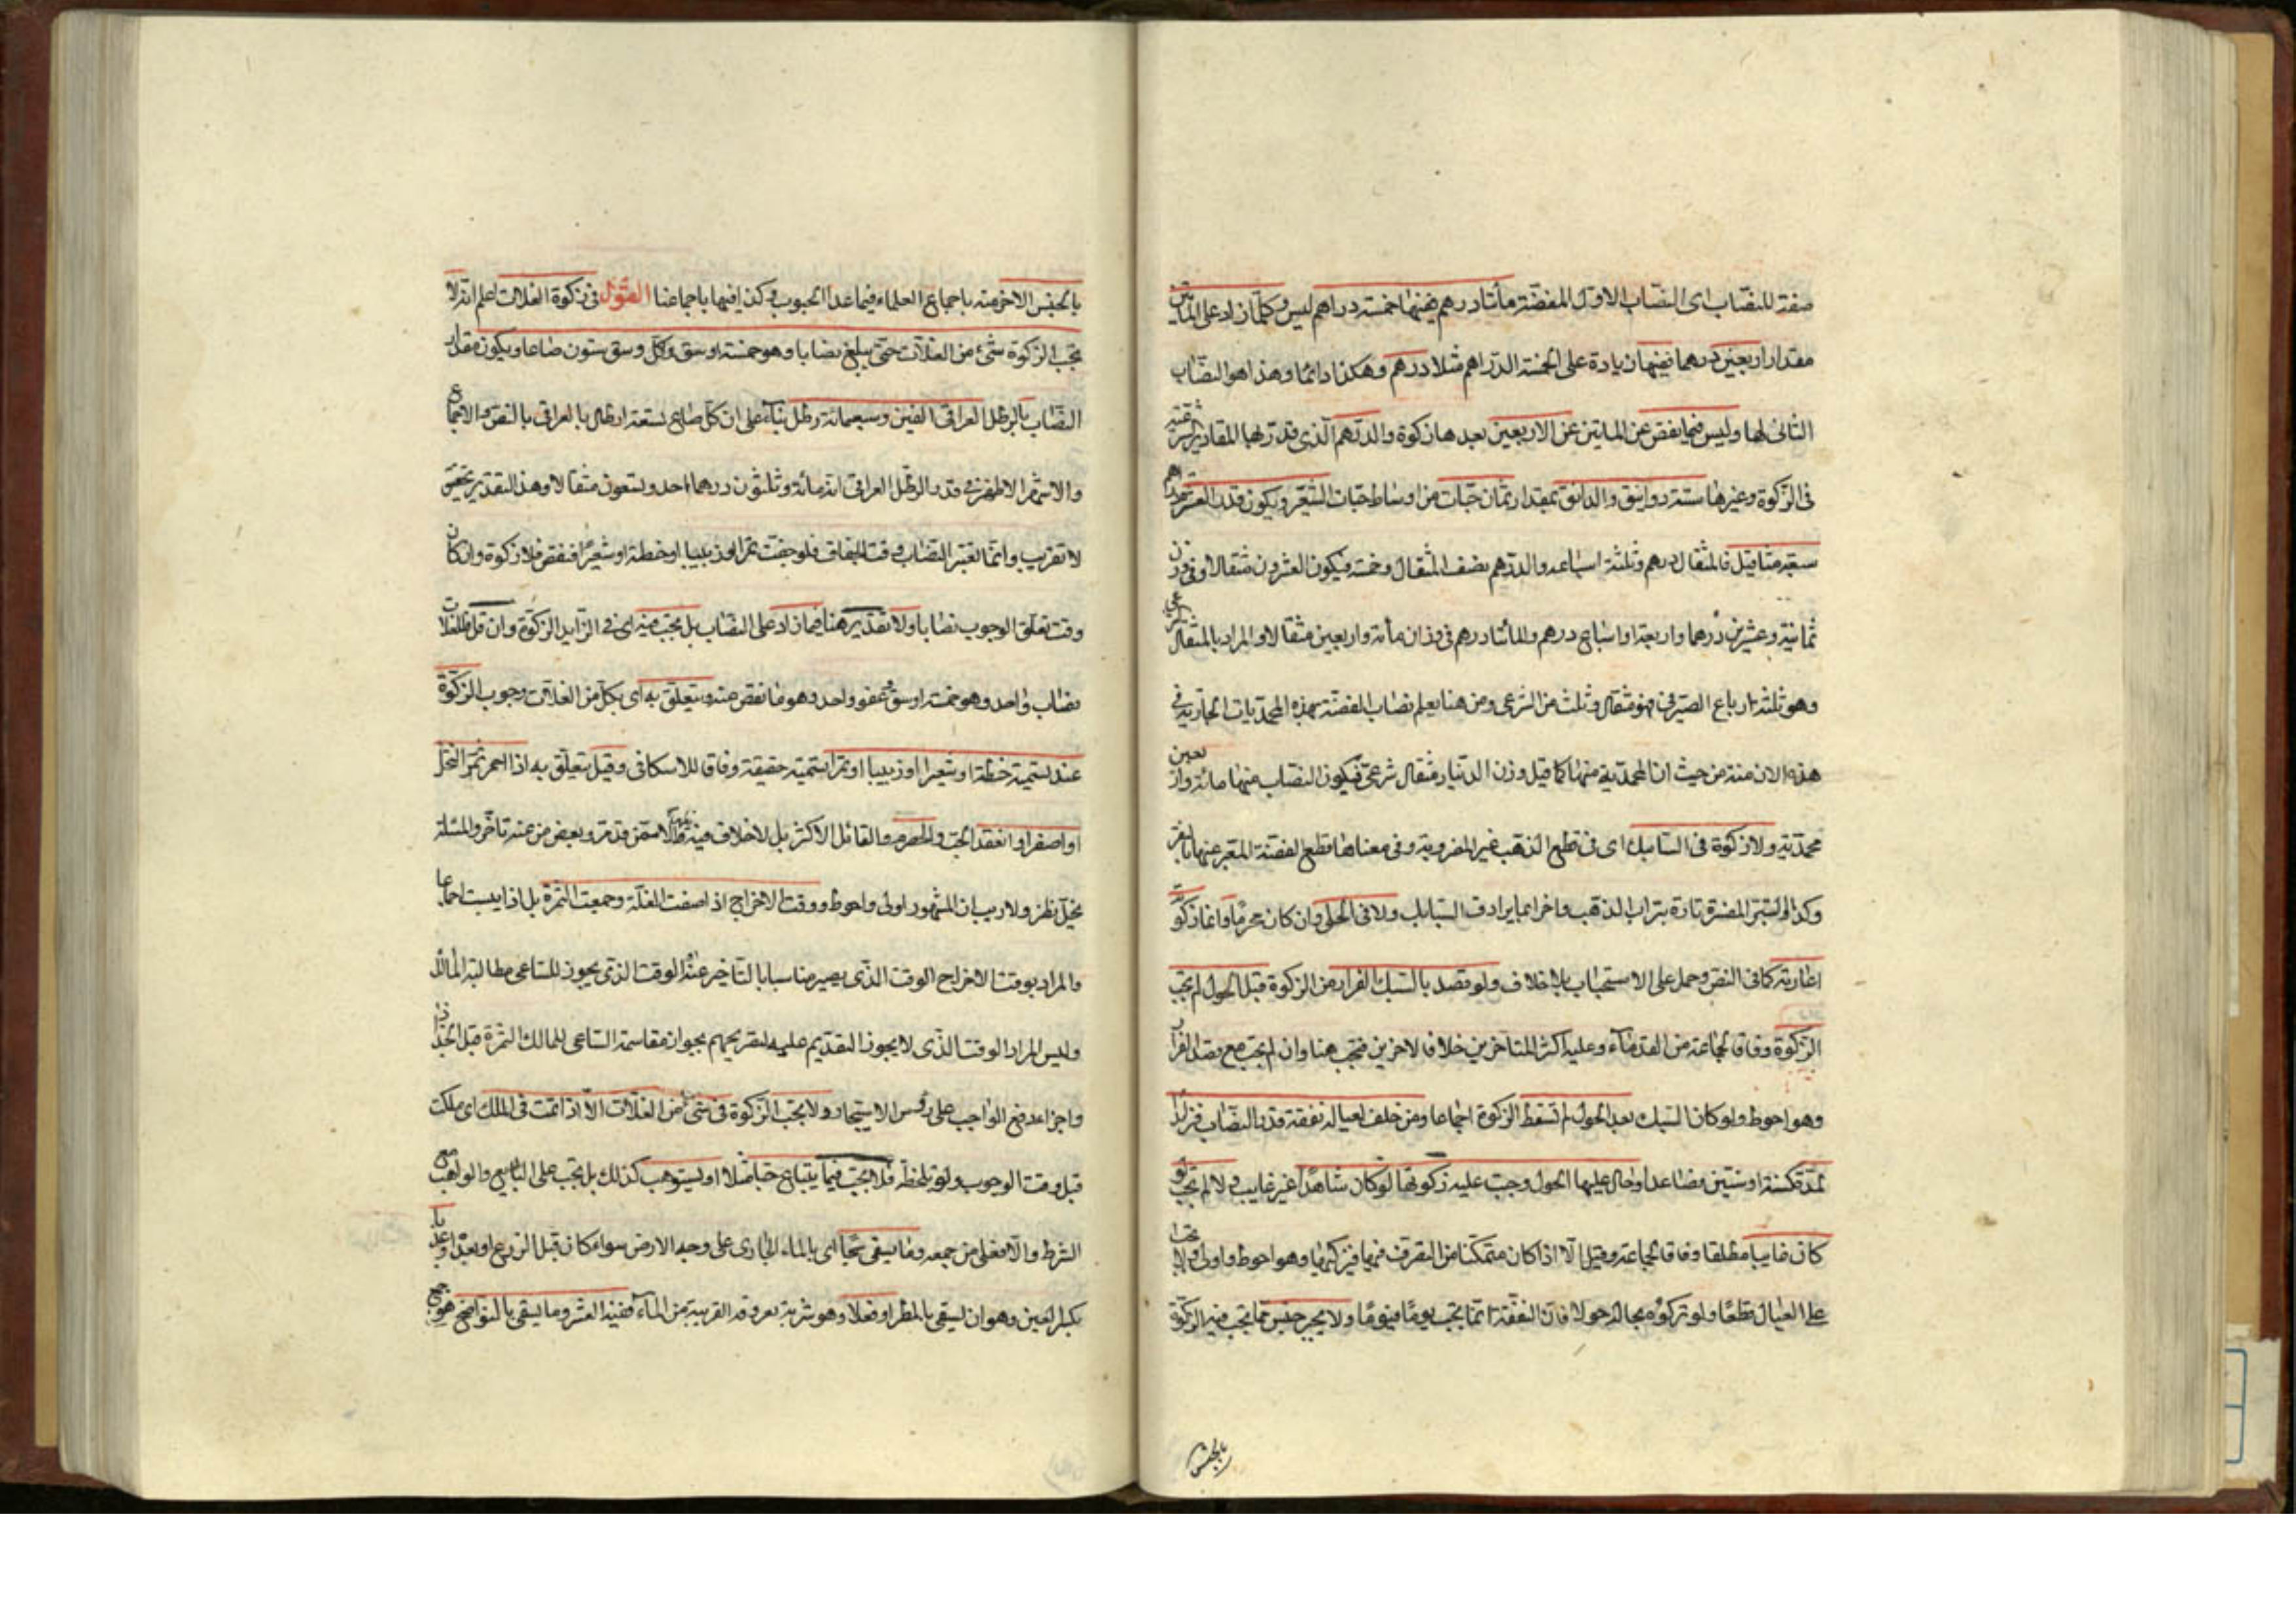 صفة للنصاب اى النصاب الاول للفضة مأتا درهم ففيها خمسة دراهم ليس وكلما زاد على المأتين
مقدار اربعين درهما ففيها زيادة على الخمسة الدراهم مثلا درهم وهكذا دائما وهذا هو النصاب
الثانى لها وليس فيما نقص عن المأتين عن الاربعين بعدها زكوة والدرهم الذى قدر بها المقادير الشرعية
فى الزكوة وغيرها ستة دوانيق والدانق بمقدار ثمان حبات من اوساط حبات الشعير ويكون قدر العشر دراهم
سبعة مثاقيل فالمثقال درهم وثلثة اسباعه والدرهم نصف المثقال وخمسه فيكون العشرون مثقالا فى وزن
ثمانية وعشرين درهما واربعة اسباع درهم والمأتا درهم فى وزان مأئة واربعين مثقالا والمراد بالمثقال الشرعى
وهو ثلثة ارباع الصيرفى فهو مثقال وثلث من الشرعى ومن هنا يعلم نصاب الفضة بهذه المحمديات الجارية فى
هذه الازمنة من حيث ان المحمدية منها كما قيل وزن الدينار مثقال شرعى فيكون النصاب منها مائة واربعين
محمدية ولا زكوة فى السبائك اى فى قطع الذهب غير المضروبة وفى معناها قطع الفضة المعبر عنها بالنقر
وكذا التبر المفسر تارة بتراب الذهب واخرى بما يرادف السبايك ولا فى الحلى وان كان محرما وانما زكوته
اعارته كما فى النص وحمل على الاستحباب بلا خلاف ولو قصد بالسبك الفرار من الزكوة قبل الحول لم تجب
الزكوة وفاقا لجماعة من القدماء وعليه اكثر المتاخرين خلافا لاخرين فتجب هنا وان لم تجب مع قصد الفرار
وهو احوط ولو كان السبك بعد الحول لم تسقط الزكوة اجماعا ومن خلف لعياله نفقة قدر النصاب فزايدا
لمدة كسنة او سنتين فصاعدا وحال عليها الحول وجبت عليه زكوتها لو كان شاهدا غير غايب ولا لم تجب لو
كان غايبا مطلقا وفاقا لجماعة وقيل الا اذا كان متمكنا من التصرف فيها فيزكيها وهو احوط واولى ولا تجب
على العيال قطعا ولو تركوه بحاله حولا فان النفقة انما تجب يوما فيوما ولا يجبر جنس مما تجب فيه الزكوة
بالجنس
بالجنس الاخر منه باجماع العلماء فيما عدا الحبوب وكذا فيها باجماعنا القول فى زكوة الغلات اعلم انه لا
تجب الزكوة شئ من الغلات حتى يبلغ نصابا وهو خمسة اوسق وكل وسق ستون صاعا ويكون مقدار
النصاب بالرطل العراقى الفين وسبعمائة رطل بناء على ان كل صاع تسعة ارطال بالعراقى بالنص والاجماع
والاشهر الاظهر فى قدر الرطل العراقى انه مائة وثلثون درهما احد وتسعون مثقالا وهذا التقدير تحقيق
لا تقريب وانما تعتبر النصاب وقت الجفاف فلو جفت تمرا او زبيبا او حنطة او شعيرا فنقص فلا زكوة وان كان
وقت تعلق الوجوب نصابا ولا تقدير هنا فيما زاد على النصاب بل تجب فيه اى فى الزايد الزكوة وان قل فللغلات
نصاب واحد وهو خمسة اوسق وعفو واحد وهو ما نقص عنه ويتعلق به اى بكل من الغلات وجوب الزكوة
عند تسميته حنطة او شعيرا او زبيبا او تمرا تسمية حقيقة وفاقا للاسكافى وقيل يتعلق به اذا احمر ثمر النخل
او اصفر او انعقد الحب والحصرم والقائل الاكثر بل لا خلاف فيه الا ممن قدمه وبعض من عنه تاخر والمسئلة
محل نظر ولا ريب ان المشهور اولى واحوط ووقت الاخراج اذ اصفت الغلة وجمعت الثمرة بل اذا يبست اجماعا
والمراد بوقت الاخراج الوقت الذى يصير مناسبا بالتاخير عنه الوقت الذى يجوز للساعى مطالبة المالك
وليس المراد الوقت الذى لا يجوز التقديم عليه لتصريحهم بجواز مقاسمة الساعى للمالك الثمرة قبل الجذاذ
واجزاء دفع الواجب على رؤس الاشجار ولا تجب الزكوة فى شئ من الغلات الا اذا تمت فى الملك اى ملكت
قبل وقت الوجوب ولو بلحظة فلا تجب فيما يبتاع حبا مثلا او يستوهب كذلك بل تجب على البايع والواهب مع
الشرط والا فعلى من جمعه وما يسقى سيحا اى بالماء الجارى على وجه الارض سواء كان قبل الزرع او بعده او عذيا
بكسر العين وهو ان يسقى بالمطر او بعلا وهو شربه بعروقه القريبة من الماء ففيه العشر وما يسقى بالنواضح هو جمع